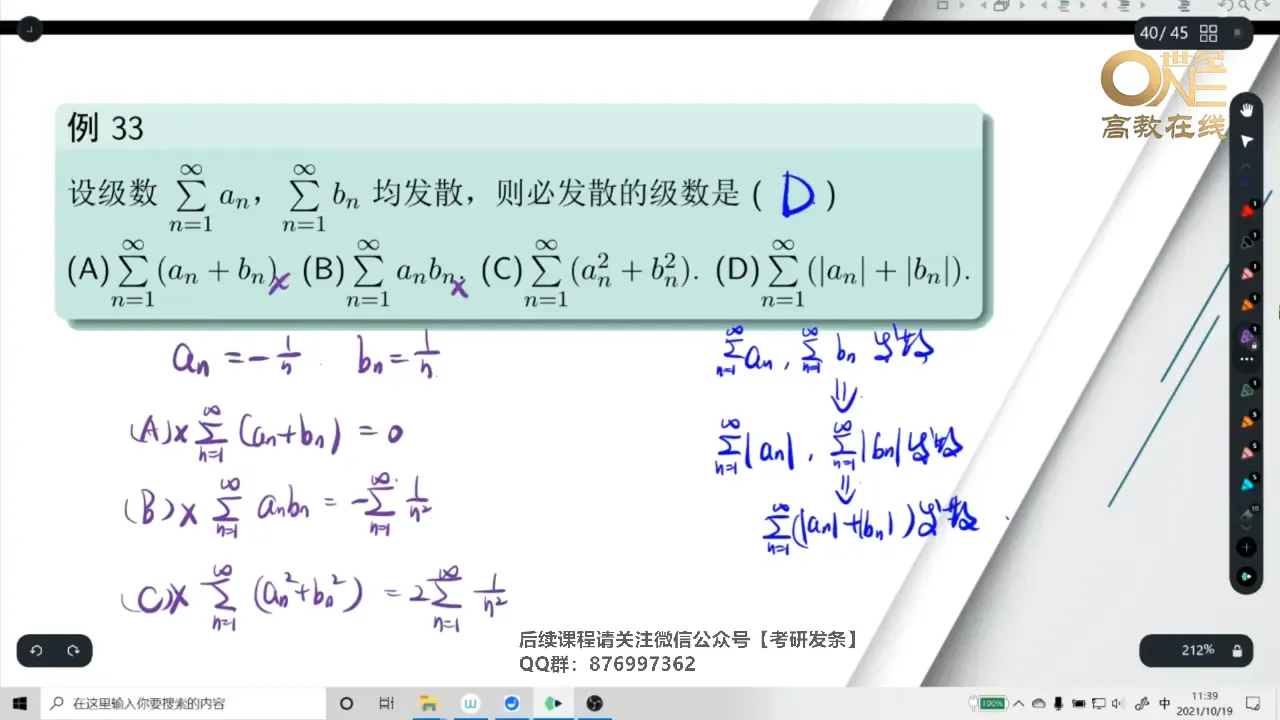 40/ 45
世纪
ONE
高教在线
例 33
设级数 ∑_{n=1}^{∞} a_n，∑_{n=1}^{∞} b_n 均发散，则必发散的级数是 ( D )
(A) ∑_{n=1}^{∞} (a_n + b_n). × (B) ∑_{n=1}^{∞} a_n b_n. × (C) ∑_{n=1}^{∞} (a_n^2 + b_n^2). (D) ∑_{n=1}^{∞} (|a_n| + |b_n|).
a_n = -1/n . b_n = 1/n
(A)× ∑_{n=1}^{∞} (a_n+b_n) = 0
(B)× ∑_{n=1}^{∞} a_n b_n = -∑_{n=1}^{∞} 1/n^2
(C)× ∑_{n=1}^{∞} (a_n^2+b_n^2) = 2∑_{n=1}^{∞} 1/n^2
∑_{n=1}^{∞} a_n , ∑_{n=1}^{∞} b_n 发散
⇓
∑_{n=1}^{∞} |a_n| , ∑_{n=1}^{∞} |b_n| 发散
⇓
∑_{n=1}^{∞} (|a_n|+|b_n|) 发散
后续课程请关注微信公众号【考研发条】
QQ群：876997362
212%
在这里输入你要搜索的内容
100%
中
11:39
2021/10/19